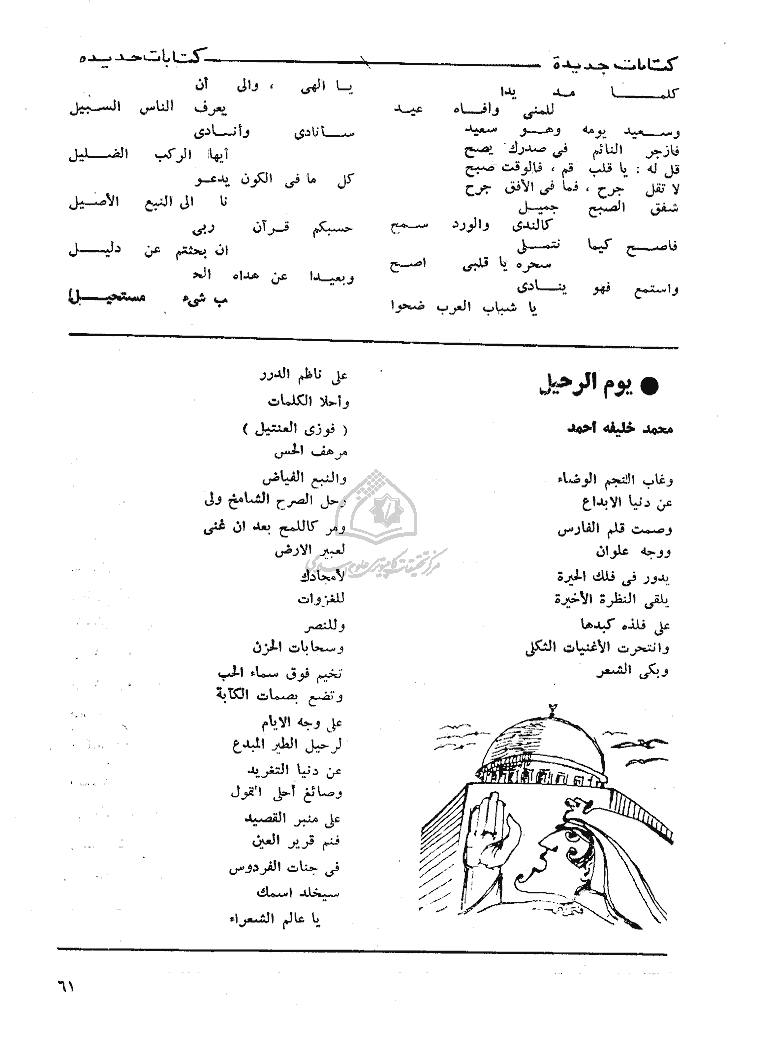 كتابات جديدة
كتابات جديده
كلمــــا مــد يدا
للمنى وافــاه عيــد
وســعيد يومه وهــو سعيد
فازجر النائم فى صدرك يصح
قل له : يا قلب قم ، فالوقت صبح
لا تقل جرح ، فما فى الأفق جرح
شفق الصبح جميــل
كالندى والورد سـمح
فاصــح كيما نتمــلى
سحره يا قلبى اصــح
واستمع فهو ينــادى
يا شباب العرب ضحوا
يــا الهى ، والى أن
يعرف الناس الســبيل
ســأنادى وأنــادى
أيها الركب الضــليل
كل ما فى الكون يدعــو
نا الى النبع الأصــيل
حسبكم قــرآن ربى
ان بحثتم عن دليــــل
وبعيــدا عن هداه الحـ
ـب شىء مستحيــــل!
● يوم الرحيل
محمد خليفه احمد
وغاب النجم الوضاء
عن دنيا الابداع
وصمت قلم الفارس
ووجه علوان
يدور فى فلك الحيرة
يلقى النظرة الأخيرة
على فلذه كبدها
وانتحرت الأغنيات الثكلى
وبكى الشعر
على ناظم الدرر
وأحلا الكلمات
( فوزى العنتيل )
مرهف الحس
والنبع الفياض
رحل الصرح الشامخ ولى
ومر كاللمح بعد ان غنى
لعبير الارض
لأمجادك
للغزوات
وللنصر
وسحابات الحزن
تخيم فوق سماء الحب
وتضع بصمات الكآبة
على وجه الايام
لرحيل الطير المبدع
عن دنيا التغريد
وصائغ أحلى القول
على منبر القصيد
فنم قرير العين
فى جنات الفردوس
سيخلد اسمك
يا عالم الشعراء
مركز تحقيقات كامپيوترى علوم اسلامى
٦١